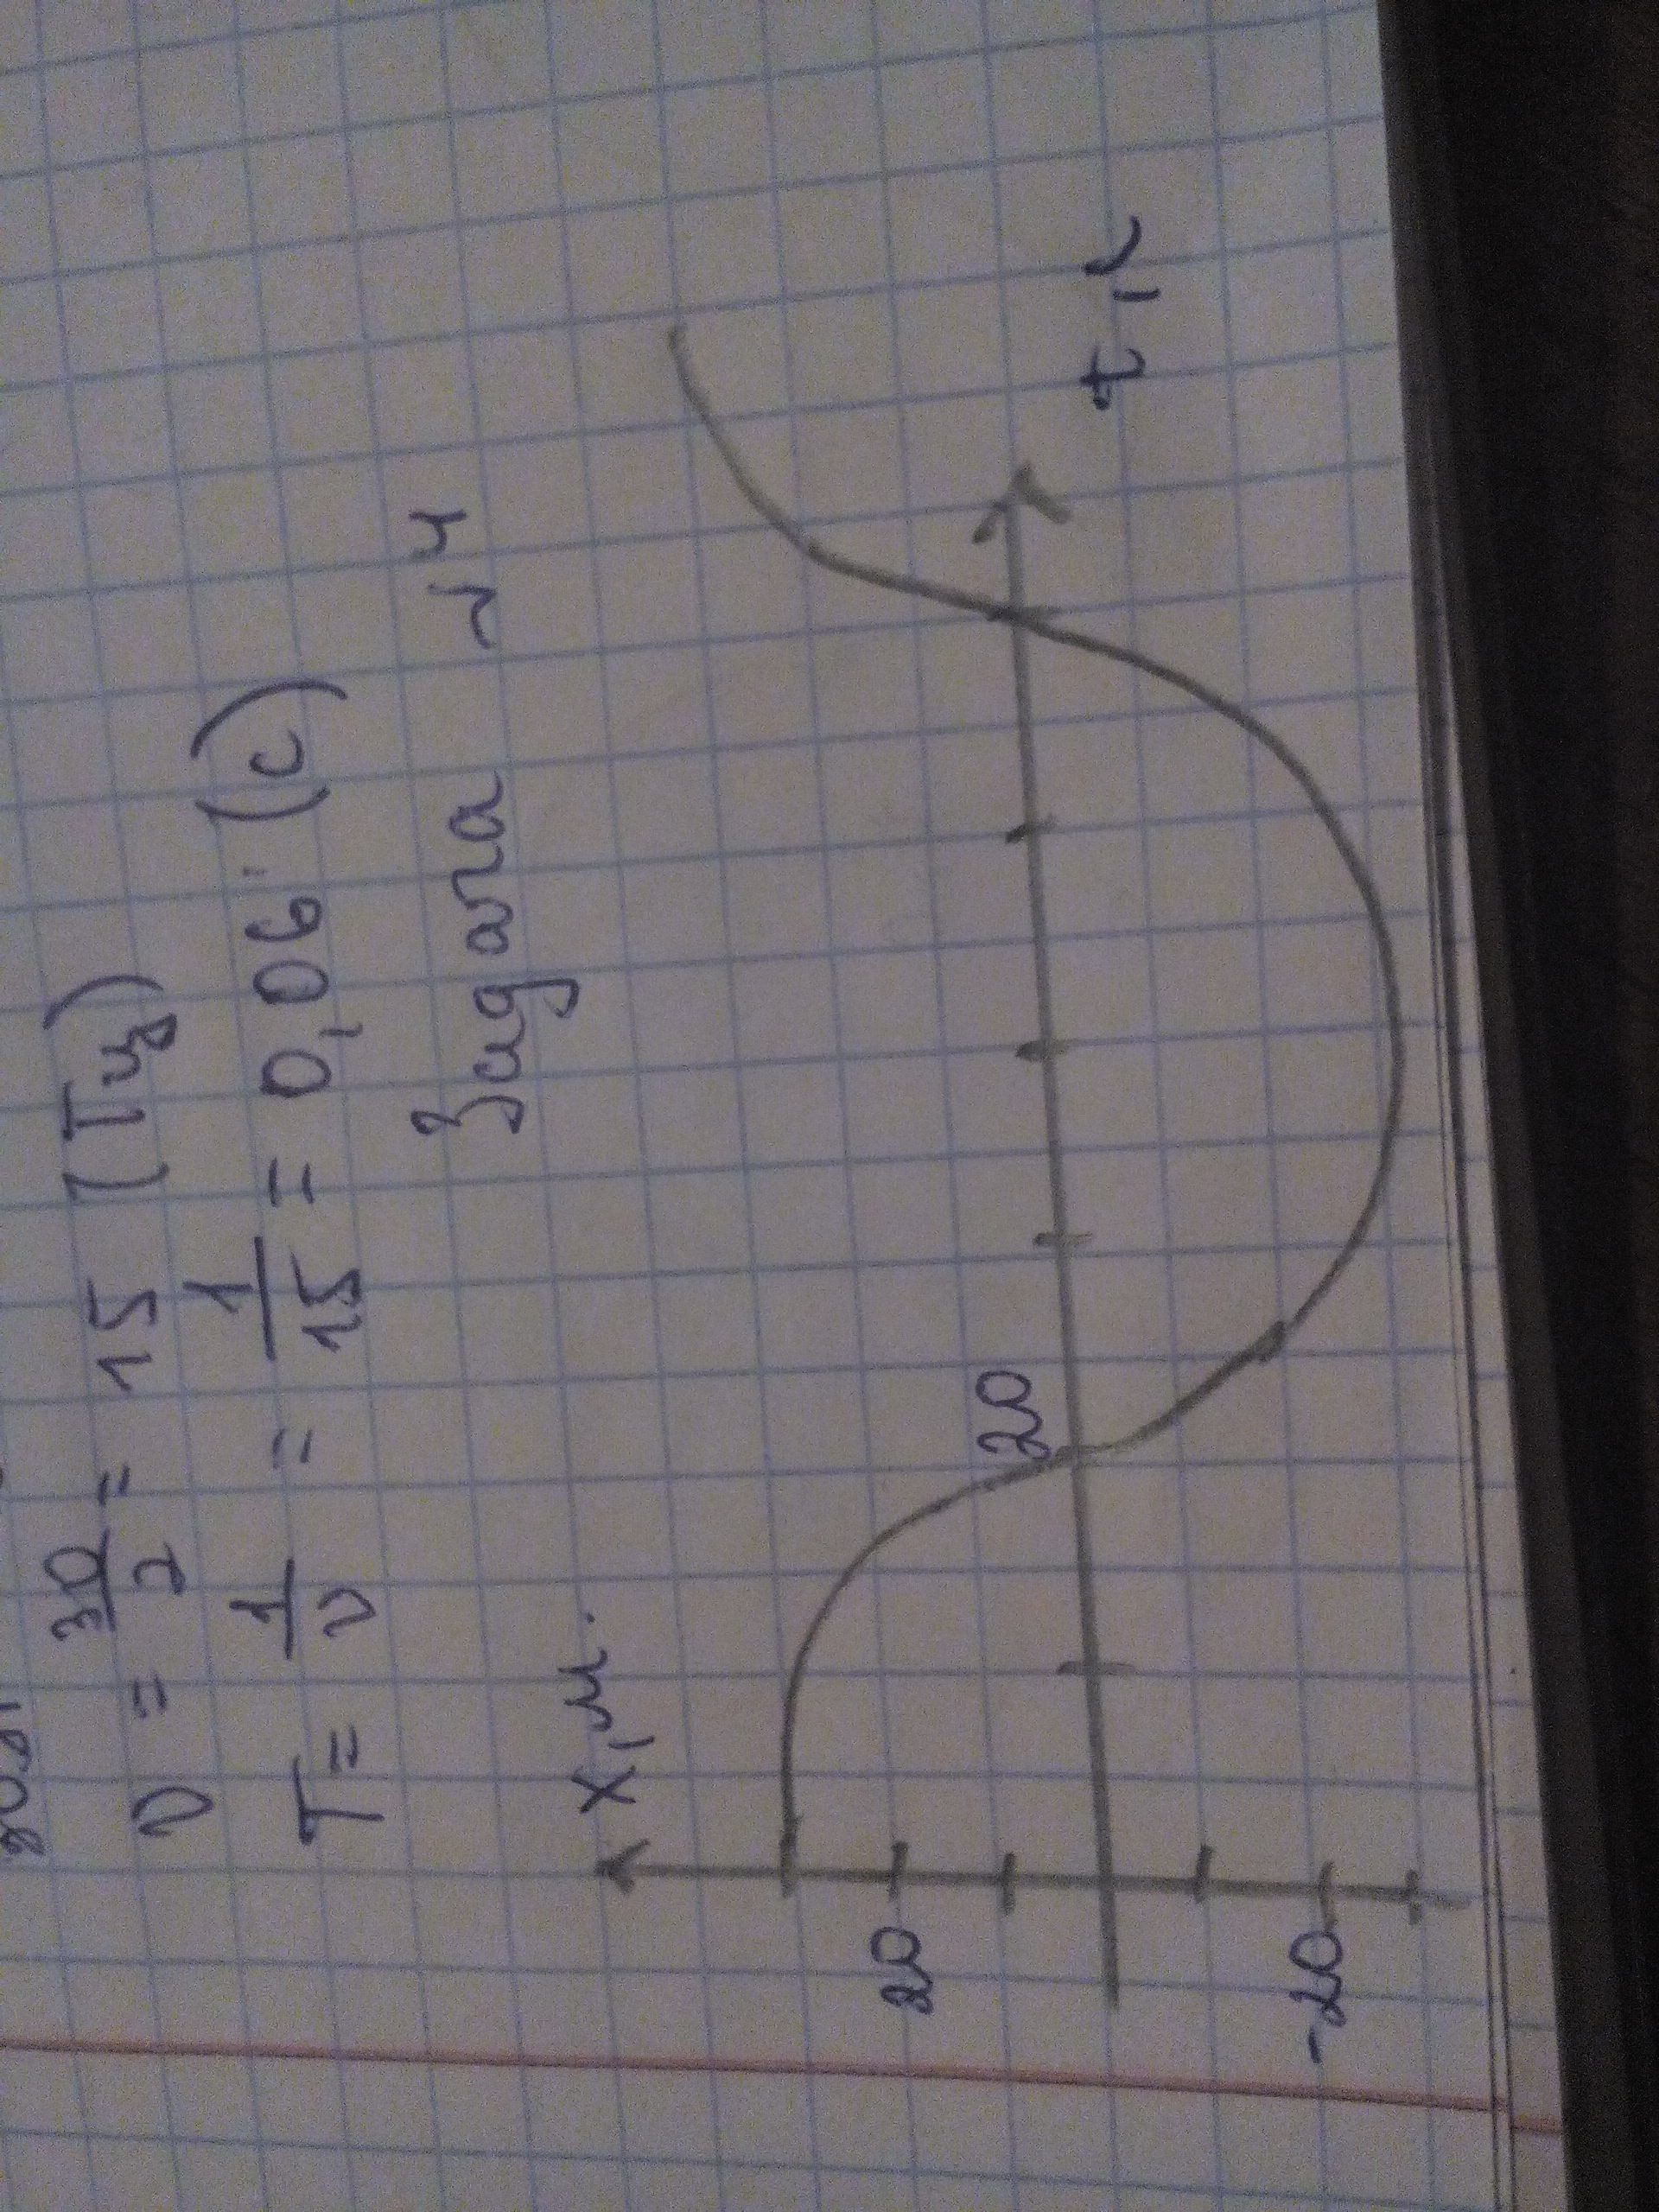 ν = 30/2 = 15 (Гц)
T = 1/ν = 1/15 = 0,06 (с)
Задача №4
x, м.
20
20
-20
t, c